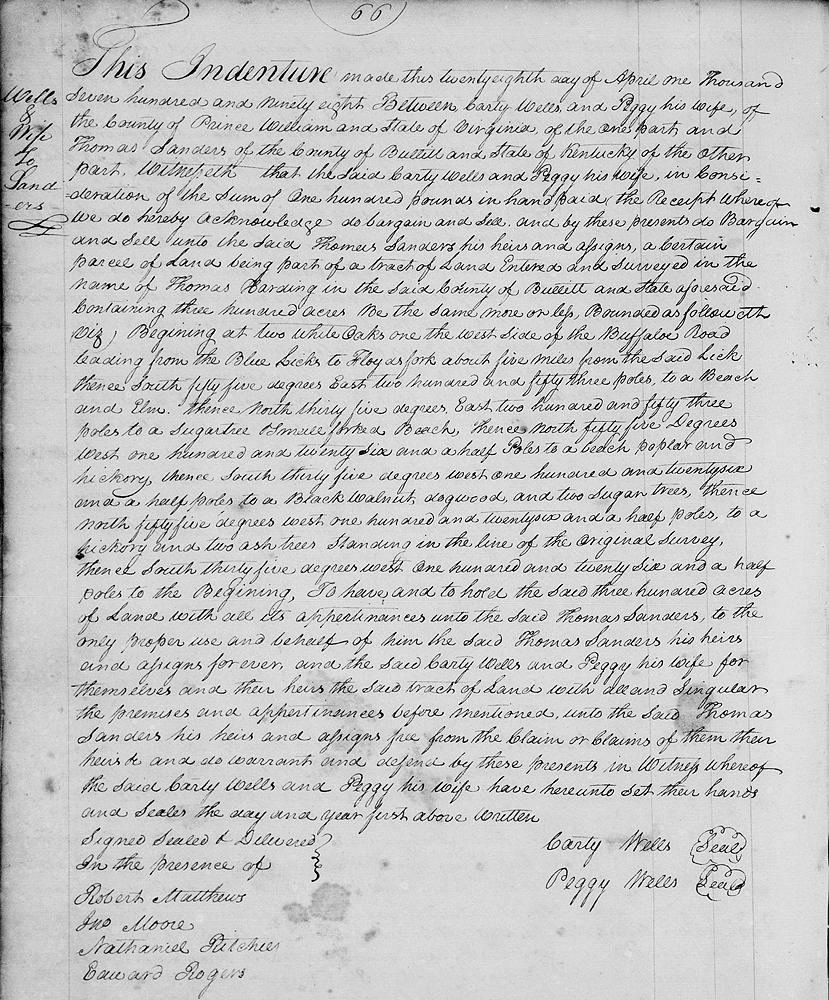 66
Wells
&
Wife
To
Sand
-ers
This Indenture made this twentyeighth day of April one Thousand
Seven hundred and Ninety eight Between Carty Wells and Peggy his wife, of
the County of Prince William and State of Virginia, of the one part and
Thomas Sanders of the County of Bullitt and State of Kentucky of the other
part, Witnesseth that the said Carty Wells and Peggy his wife, in Consi=
=deration of the Sum of One hundred pounds in hand paid, the Receipt whereof
We do hereby acknowledge do bargain and Sell and by these presents do Bargain
and Sell unto the said Thomas Sanders his heirs and assigns, a Certain
parcel of Land being part of a tract of Land Entered and Surveyed in the
name of Thomas Harding in the said County of Bullitt and State aforesaid
Containing three hundred acres Be the same more or less, Bounded as followeth
Viz, Begining at two White Oaks one the west Side of the Buffaloe Road
leading from the Blue Licks to Floyds fork about five miles from the said Lick
thence South fifty five degrees East two hundred and fifty three poles, to a Beach
and Elm. thence North thirty five degrees, East two hundred and fifty three
poles to a Sugartree & Small forked Beach, thence North fifty five Degrees
West one hundred and twenty Six and a half Poles to a beech poplar and
hickory, thence South thirty five degrees west one hundred and twentysix
and a half poles to a Black Walnut, dogwood, and two Sugar trees, thence
North fifty five degrees west one hundred and twentysix and a half poles, to a
hickory and two ash trees Standing in the line of the original Survey,
thence South thirty five degrees west One hundred and twenty Six and a half
poles to the Begining, To have and to hold the said three hundred acres
of Land with all its appertinances unto the Said Thomas Sanders, to the
only proper use and behalf of him the said Thomas Sanders his heirs
and assigns forever, and the said Carty Wells and Peggy his wife for
themselves and their heirs the said tract of Land with all and Singular
the premises and appertinances before mentioned, unto the Said Thomas
Sanders his heirs and assigns free from the Claim or Claims of them their
heirs & and do warrant and defend by these presents in Witness whereof
the said Carty Wells and Peggy his wife have hereunto set their hands
and Seales the day and year first above Written
Signed Sealed & Delivered
In the presence of
Carty Wells Seal
Peggy Wells Seal
Robert Matthews
Jno Moore
Nathaniel
Edward Rogers